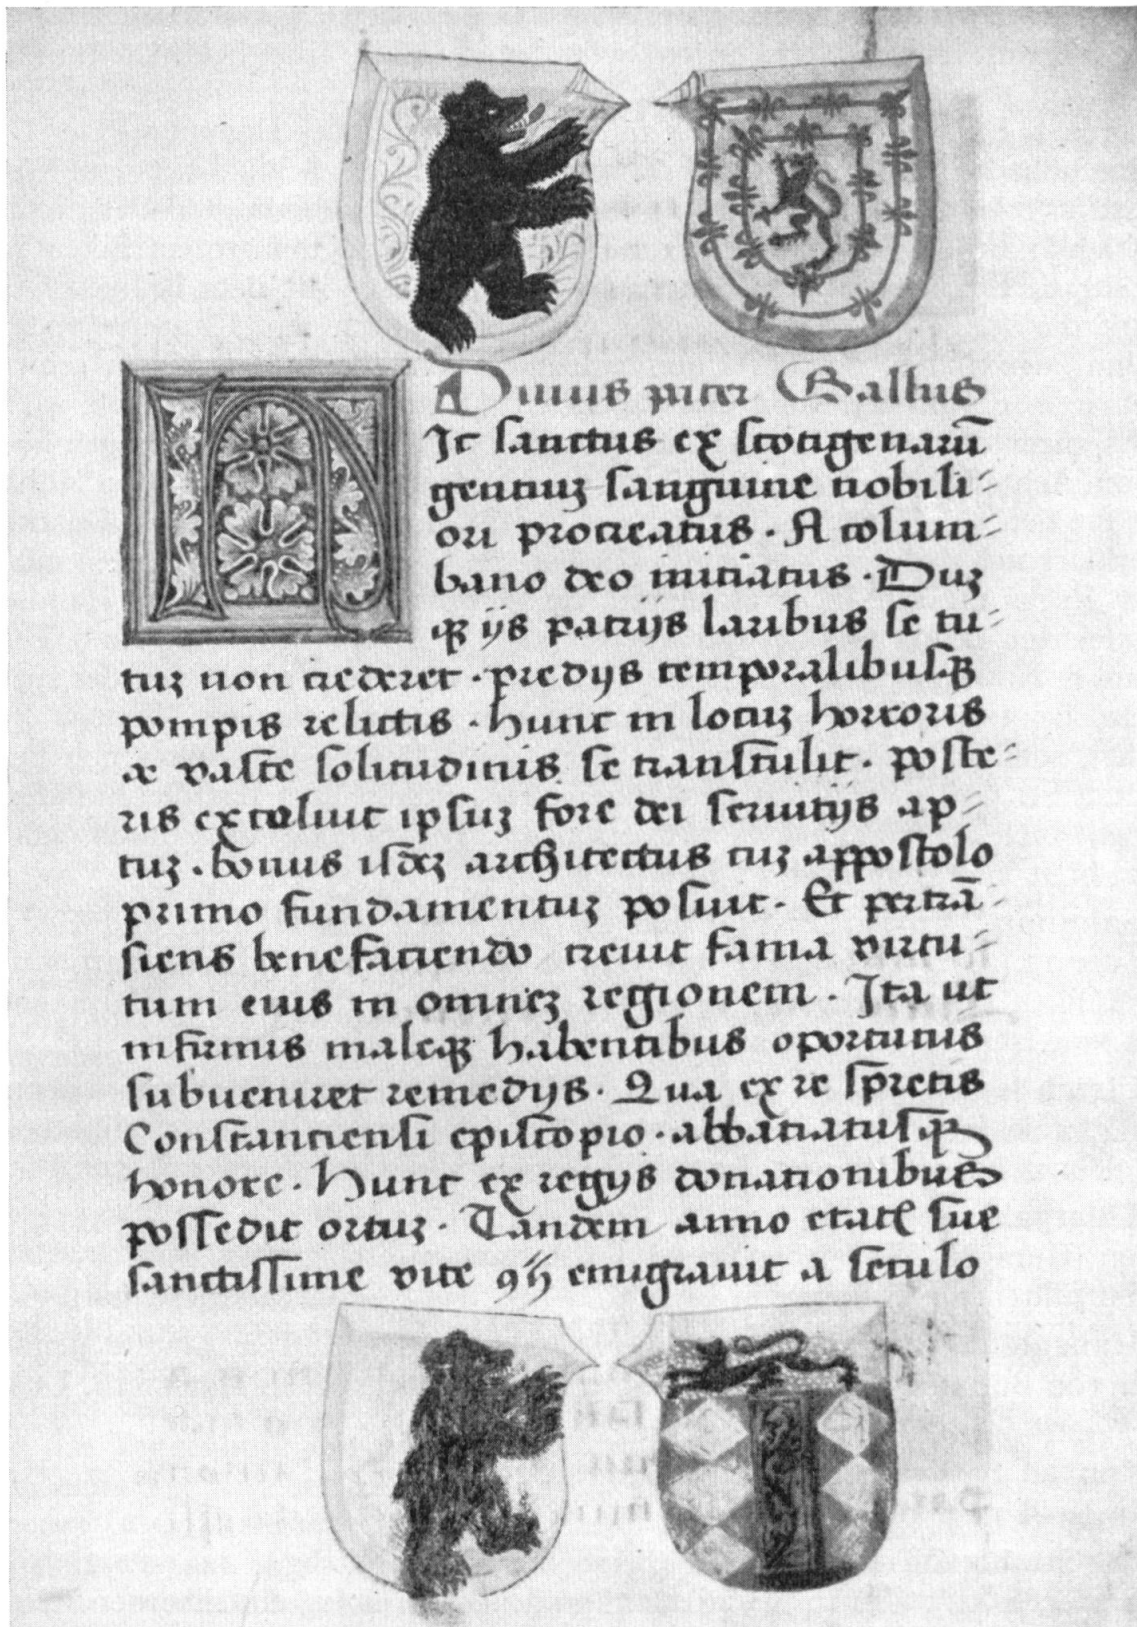 Diuus pater Gallus
Hic sanctus ex scotigenarū
gentiuʒ sanguine nobili=
ori procreatus · A colum=
bano deo initiatus · Duʒ
qꝫ ijs patrijs laribus se tu=
tuʒ non crederet · predijs temporalibusqꝫ
pompis relictis · hunc in locuʒ horroris
& vaste solitudinis se transtulit · poste=
ris excoluit ipsuʒ fore dei seruitijs ap=
tuʒ · bonus isdeʒ architectus cuʒ appostolo
primo fundamentuʒ posuit · Et pertrā=
siens benefaciendo creuit fama virtu=
tum eius in omneʒ regionem · Ita ut
infirmis maleqꝫ habentibus oportunis
subueniret remedijs · Qua ex re spretis
Constanciensi episcopio · abbaciatusqꝫ
honore · Hunc ex regijs donationibus
possedit ortuʒ · Tandem anno etatꝭ sue
sanctissime vite emigrauit a seculo